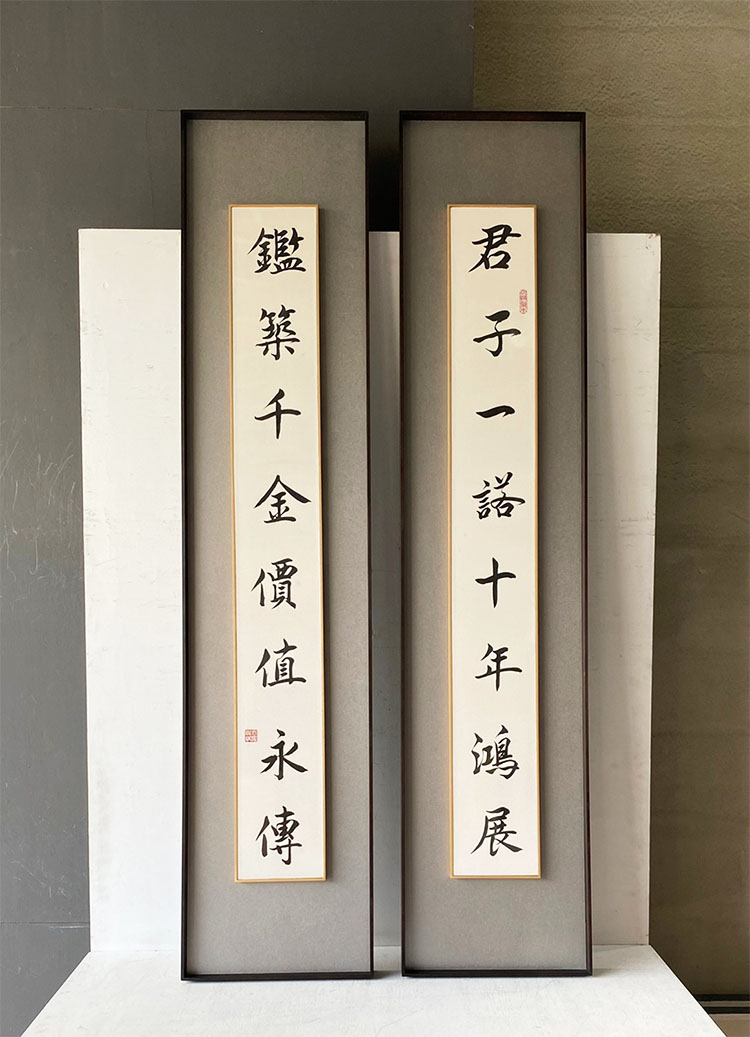 君子一諾十年鴻展
鑑築千金價值永傳